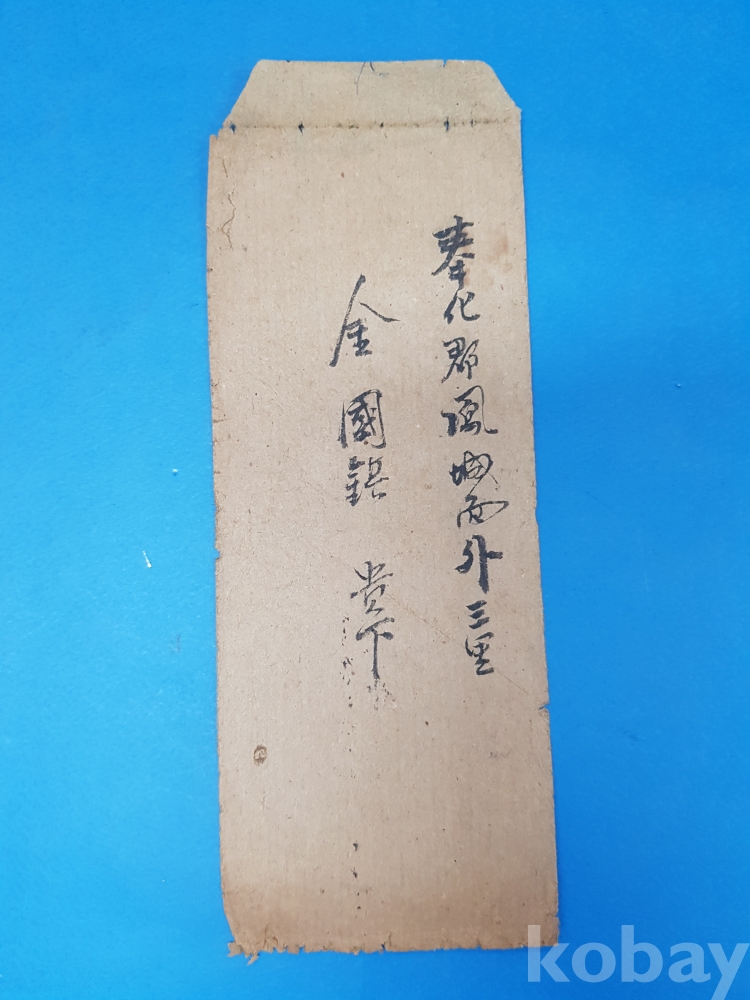 奉化郡鳳城面外三里
金國鎮 貴下
kobay